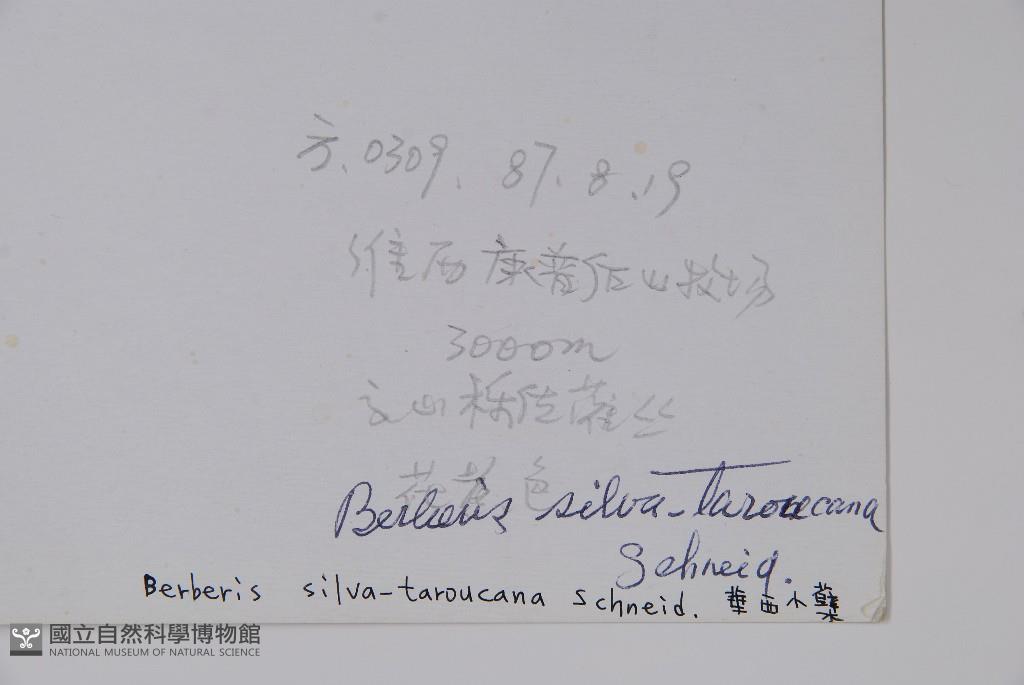 方. 0309. 87. 8. 19
维西康普 山牧场
3000m
山栎 丛
花黄色
Berberis silva-taroucana
Schneid.
Berberis silva-taroucana Schneid. 華西小蘗
國立自然科學博物館
NATIONAL MUSEUM OF NATURAL SCIENCE